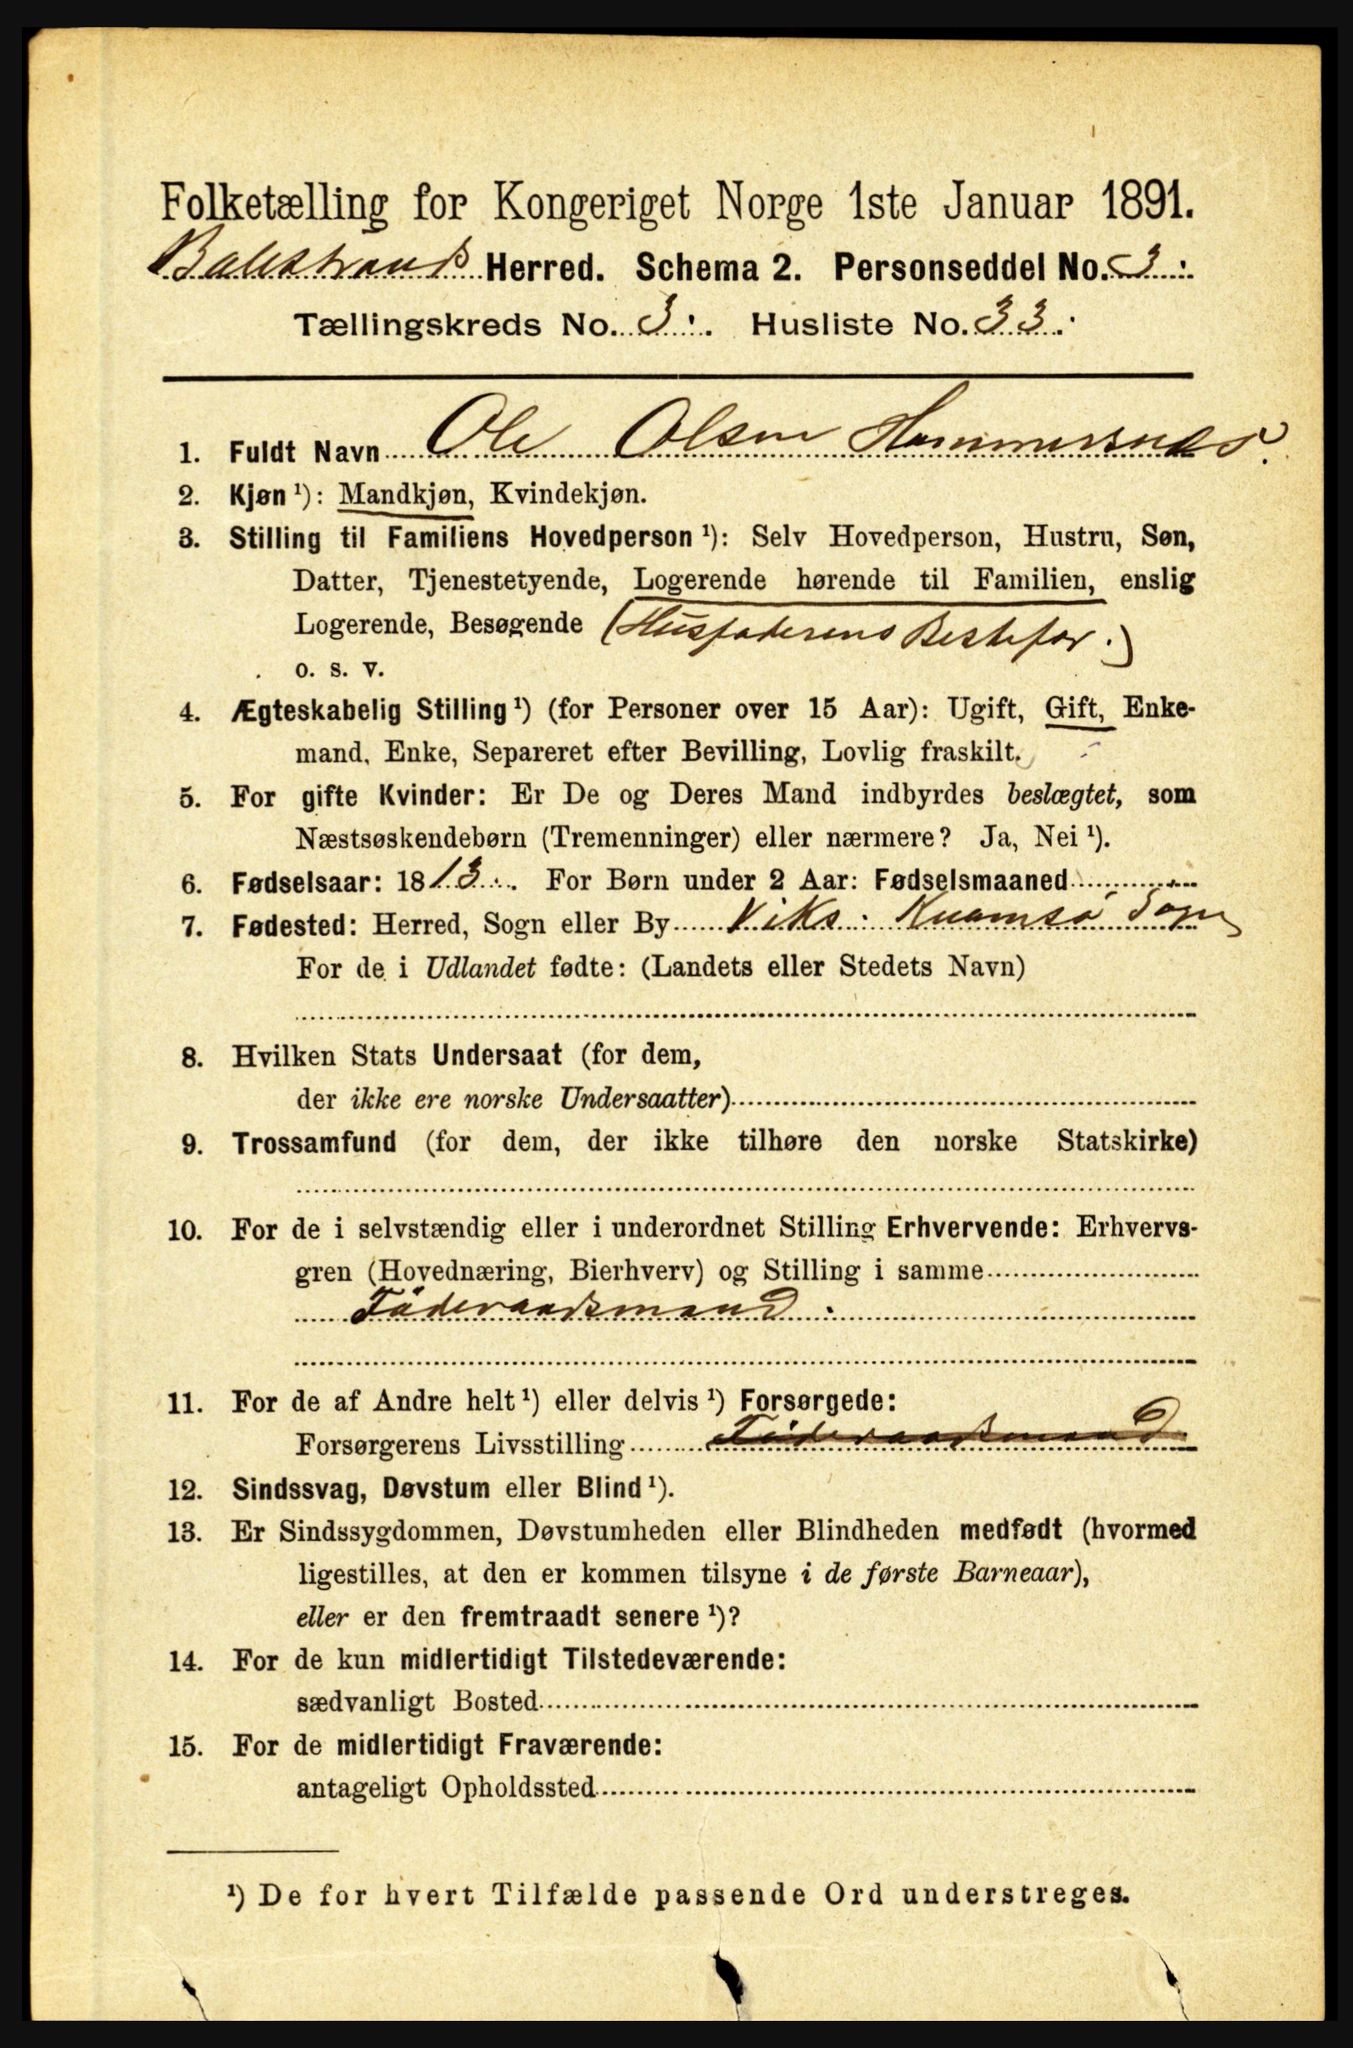 Folketælling for Kongeriget Norge 1ste Januar 1891.
Balestrand Herred. Schema 2. Personseddel No. 3.
Tællingskreds No. 3. Husliste No. 33.
1. Fuldt Navn Ole Olsen Hammersnes.
2. Kjøn ¹): Mandkjøn, Kvindekjøn.
3. Stilling til Familiens Hovedperson ¹): Selv Hovedperson, Hustru, Søn,
Datter, Tjenestetyende, Logerende hørende til Familien, enslig
Logerende, Besøgende (Husfaderens Bestefar.)
o. s. v.
4. Ægteskabelig Stilling ¹) (for Personer over 15 Aar): Ugift, Gift, Enke-
mand, Enke, Separeret efter Bevilling, Lovlig fraskilt.
5. For gifte Kvinder: Er De og Deres Mand indbyrdes beslægtet, som
Næstsøskendebørn (Tremenninger) eller nærmere? Ja, Nei ¹).
6. Fødselsaar: 1813. For Børn under 2 Aar: Fødselsmaaned
7. Fødested: Herred, Sogn eller By Viks. Kvamsø Sogn
For de i Udlandet fødte: (Landets eller Stedets Navn)
8. Hvilken Stats Undersaat (for dem,
der ikke ere norske Undersaatter)
9. Trossamfund (for dem, der ikke tilhøre den norske Statskirke)
10. For de i selvstændig eller i underordnet Stilling Erhvervende: Erhvervs-
gren (Hovednæring, Bierhverv) og Stilling i samme
Föderaadsmand.
11. For de af Andre helt ¹) eller delvis ¹) Forsørgede:
Forsørgerens Livsstilling Föderaadsmand
12. Sindssvag, Døvstum eller Blind ¹).
13. Er Sindssygdommen, Døvstumheden eller Blindheden medfødt (hvormed
ligestilles, at den er kommen tilsyne i de første Barneaar),
eller er den fremtraadt senere ¹)?
14. For de kun midlertidigt Tilstedeværende:
sædvanligt Bosted
15. For de midlertidigt Fraværende:
antageligt Opholdssted
¹) De for hvert Tilfælde passende Ord understreges.